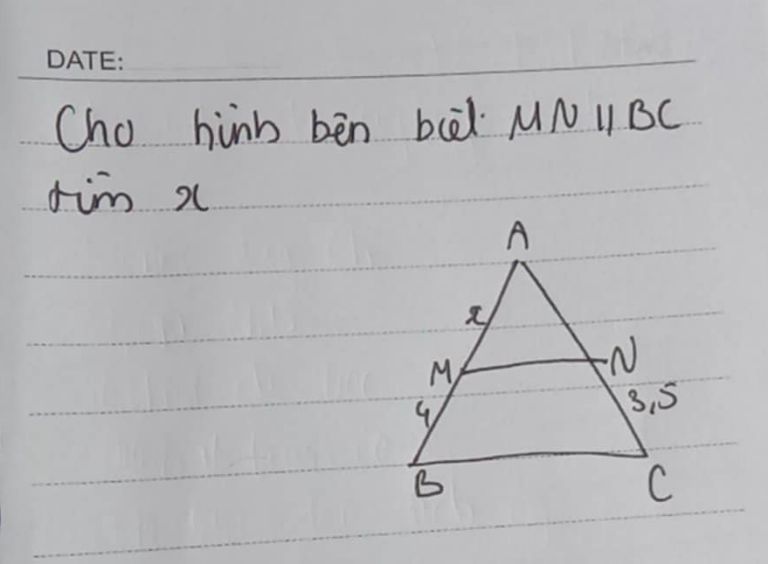 DATE:
Cho hình bên biết MN || BC
tìm x
A
x
M
N
4
3,5
B
C